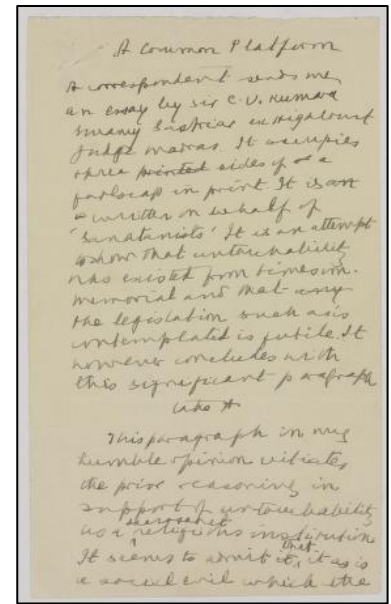 A Common Platform
A correspondent sends me
an essay by Sir C. V. Kumara
Swamy Sastriar ex Highcourt
Judge Madras. It occupies
three printed sides of a
foolscap in print. It is
written on behalf of
'Sanatanists'. It is an attempt
to show that untouchability
has existed from times im-
memorial and that any
the legislation such as is
contemplated is futile. It
however concludes with
this significant paragraph
take A
This paragraph in my
humble opinion vitiates
the prior reasoning in
support of untouchability
as a sacrosanct religious institution
It seems to admit that it is
a social evil which the